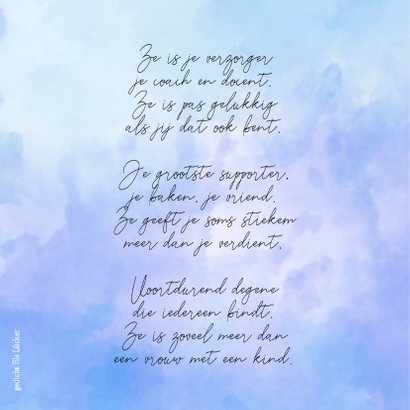 Ze is je verzorger
je coach en docent.
Ze is pas gelukkig
als jij dat ook bent.
Je grootste supporter,
je baken, je vriend.
Ze geeft je soms stiekem
meer dan je verdient.
Voortdurend degene
die iedereen bindt.
Ze is zoveel meer dan
een vrouw met een kind.
gedicht Elis Lücker